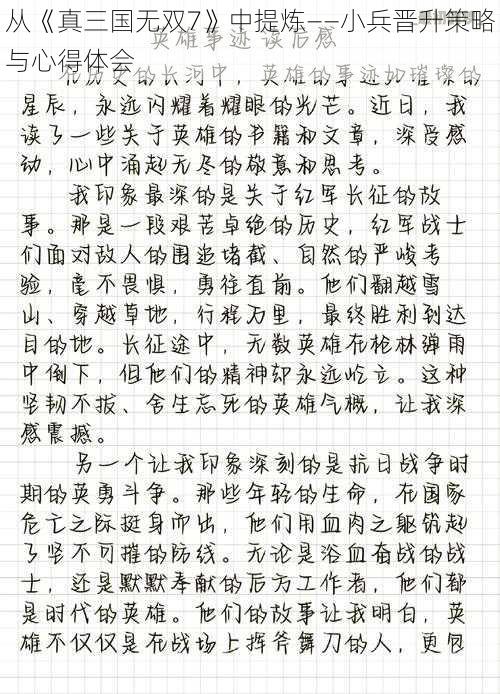 从《真三国无双7》中提炼——小兵晋升策略
与心得体会
英雄事迹读后感
在历史的长河中，英雄的事迹如璀璨的
星辰，永远闪耀着耀眼的光芒。近日，我
读了一些关于英雄的书籍和文章，深受感
动，心中涌起无尽的敬意和思考。
我印象最深的是关于红军长征的故
事。那是一段艰苦卓绝的历史，红军战士
们面对敌人的围追堵截、自然的严峻考
验，毫不畏惧，勇往直前。他们翻越雪
山、穿越草地，行程万里，最终胜利到达
目的地。长征途中，无数英雄在枪林弹雨
中倒下，但他们的精神却永远屹立。这种
坚韧不拔、舍生忘死的英雄气概，让我深
感震撼。
另一个让我印象深刻的是抗日战争时
期的英勇斗争。那些年轻的生命，在国家
危亡之际挺身而出，他们用血肉之躯筑起
了坚不可摧的防线。无论是浴血奋战的战
士，还是默默奉献的后方工作者，他们都
是时代的英雄。他们的故事让我明白，英
雄不仅仅是在战场上挥斧舞刀的人，更包